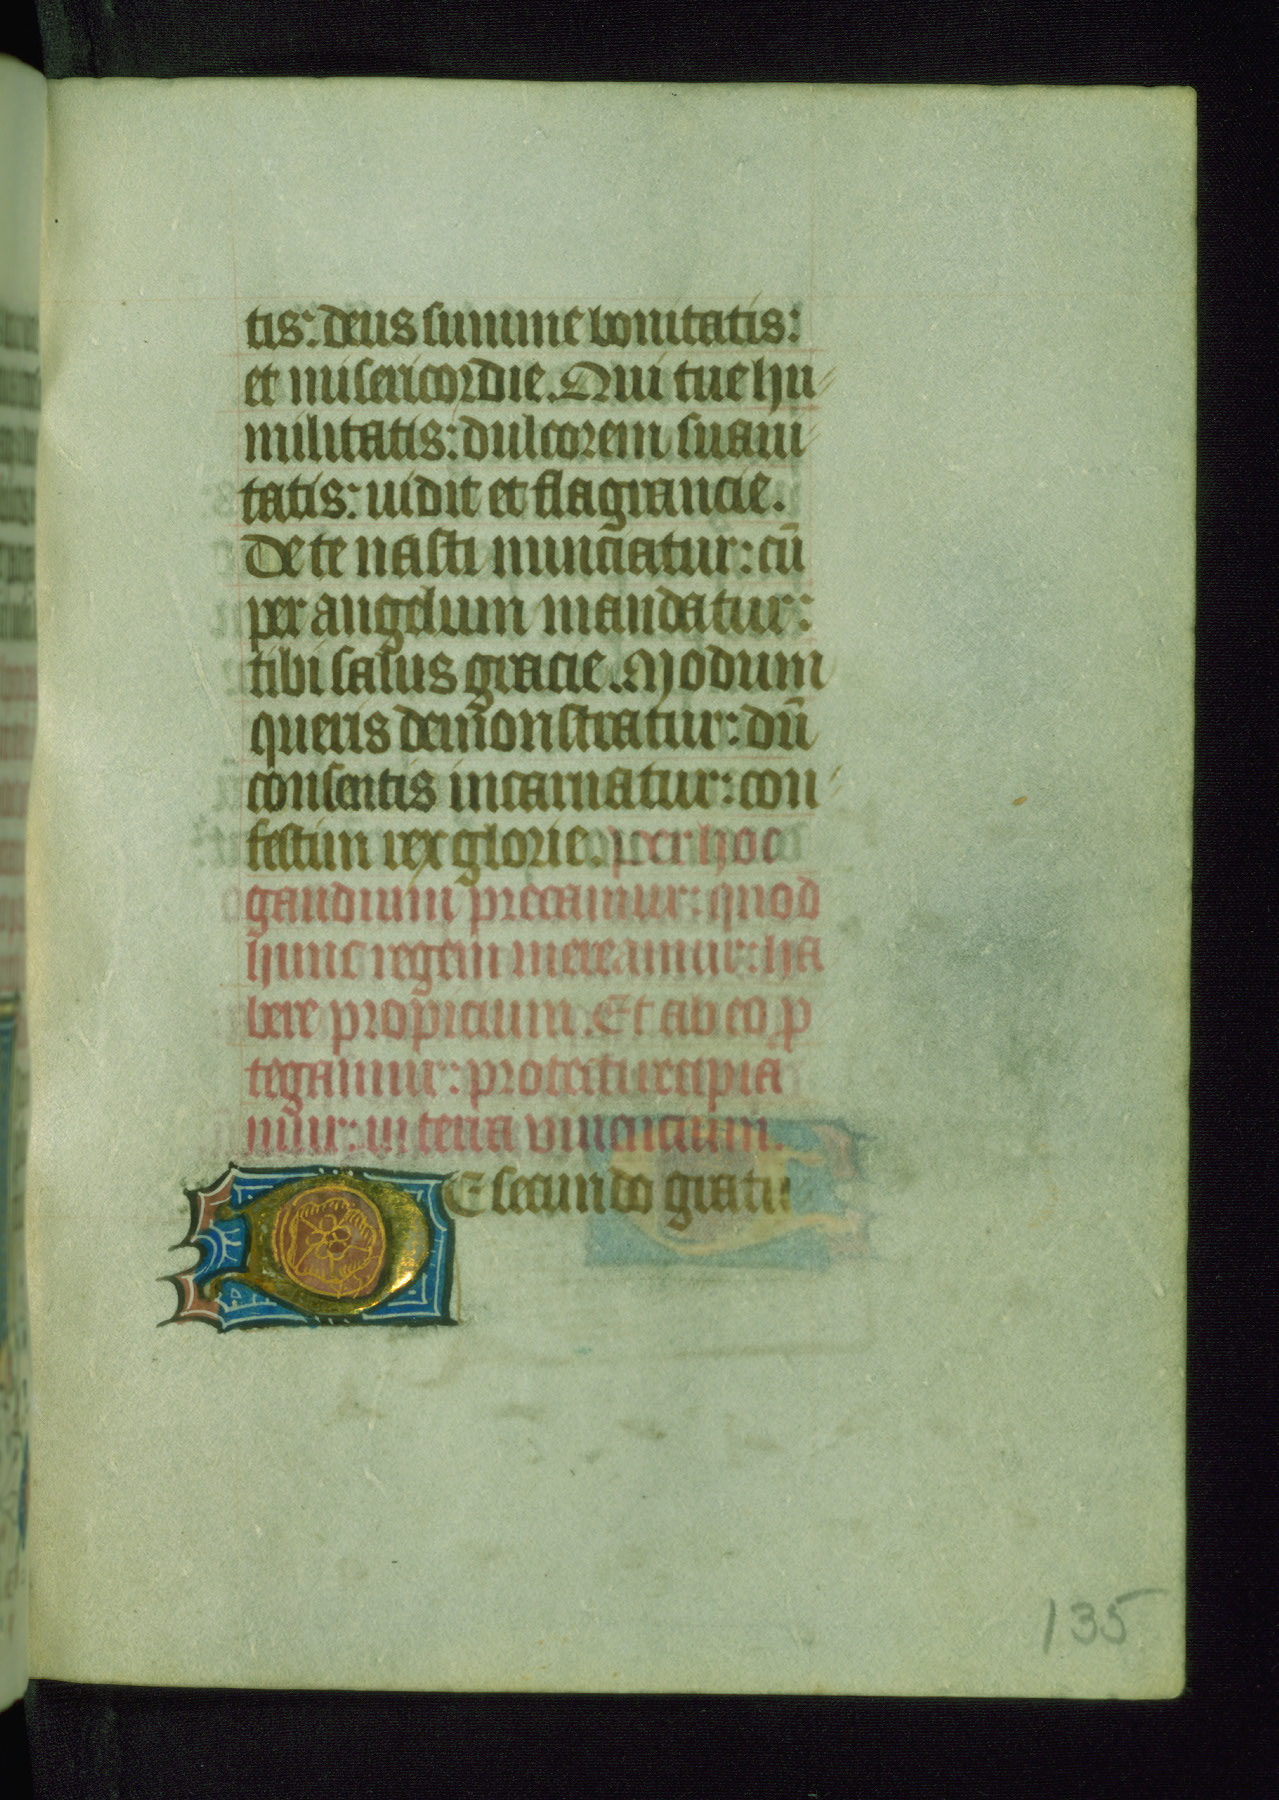 tis: deus summe bonitatis:
et misericordie. Qui tue hu
militatis: dulcorem suaui
tatis: uidit et flagrancie.
De te nasci nunciatur: cū
per angelum mandatur:
tibi salus gracie. Modum
queris demonstratur: dū
consentis incarnatur: con
festim rex glorie. per hoc
gaudium precamur: quod
hunc regem mereamur: ha
bere propicium. Et ab eo p
tegamur: protecti recipia
mur: in terra viuencium.
DE secundo gratu
135